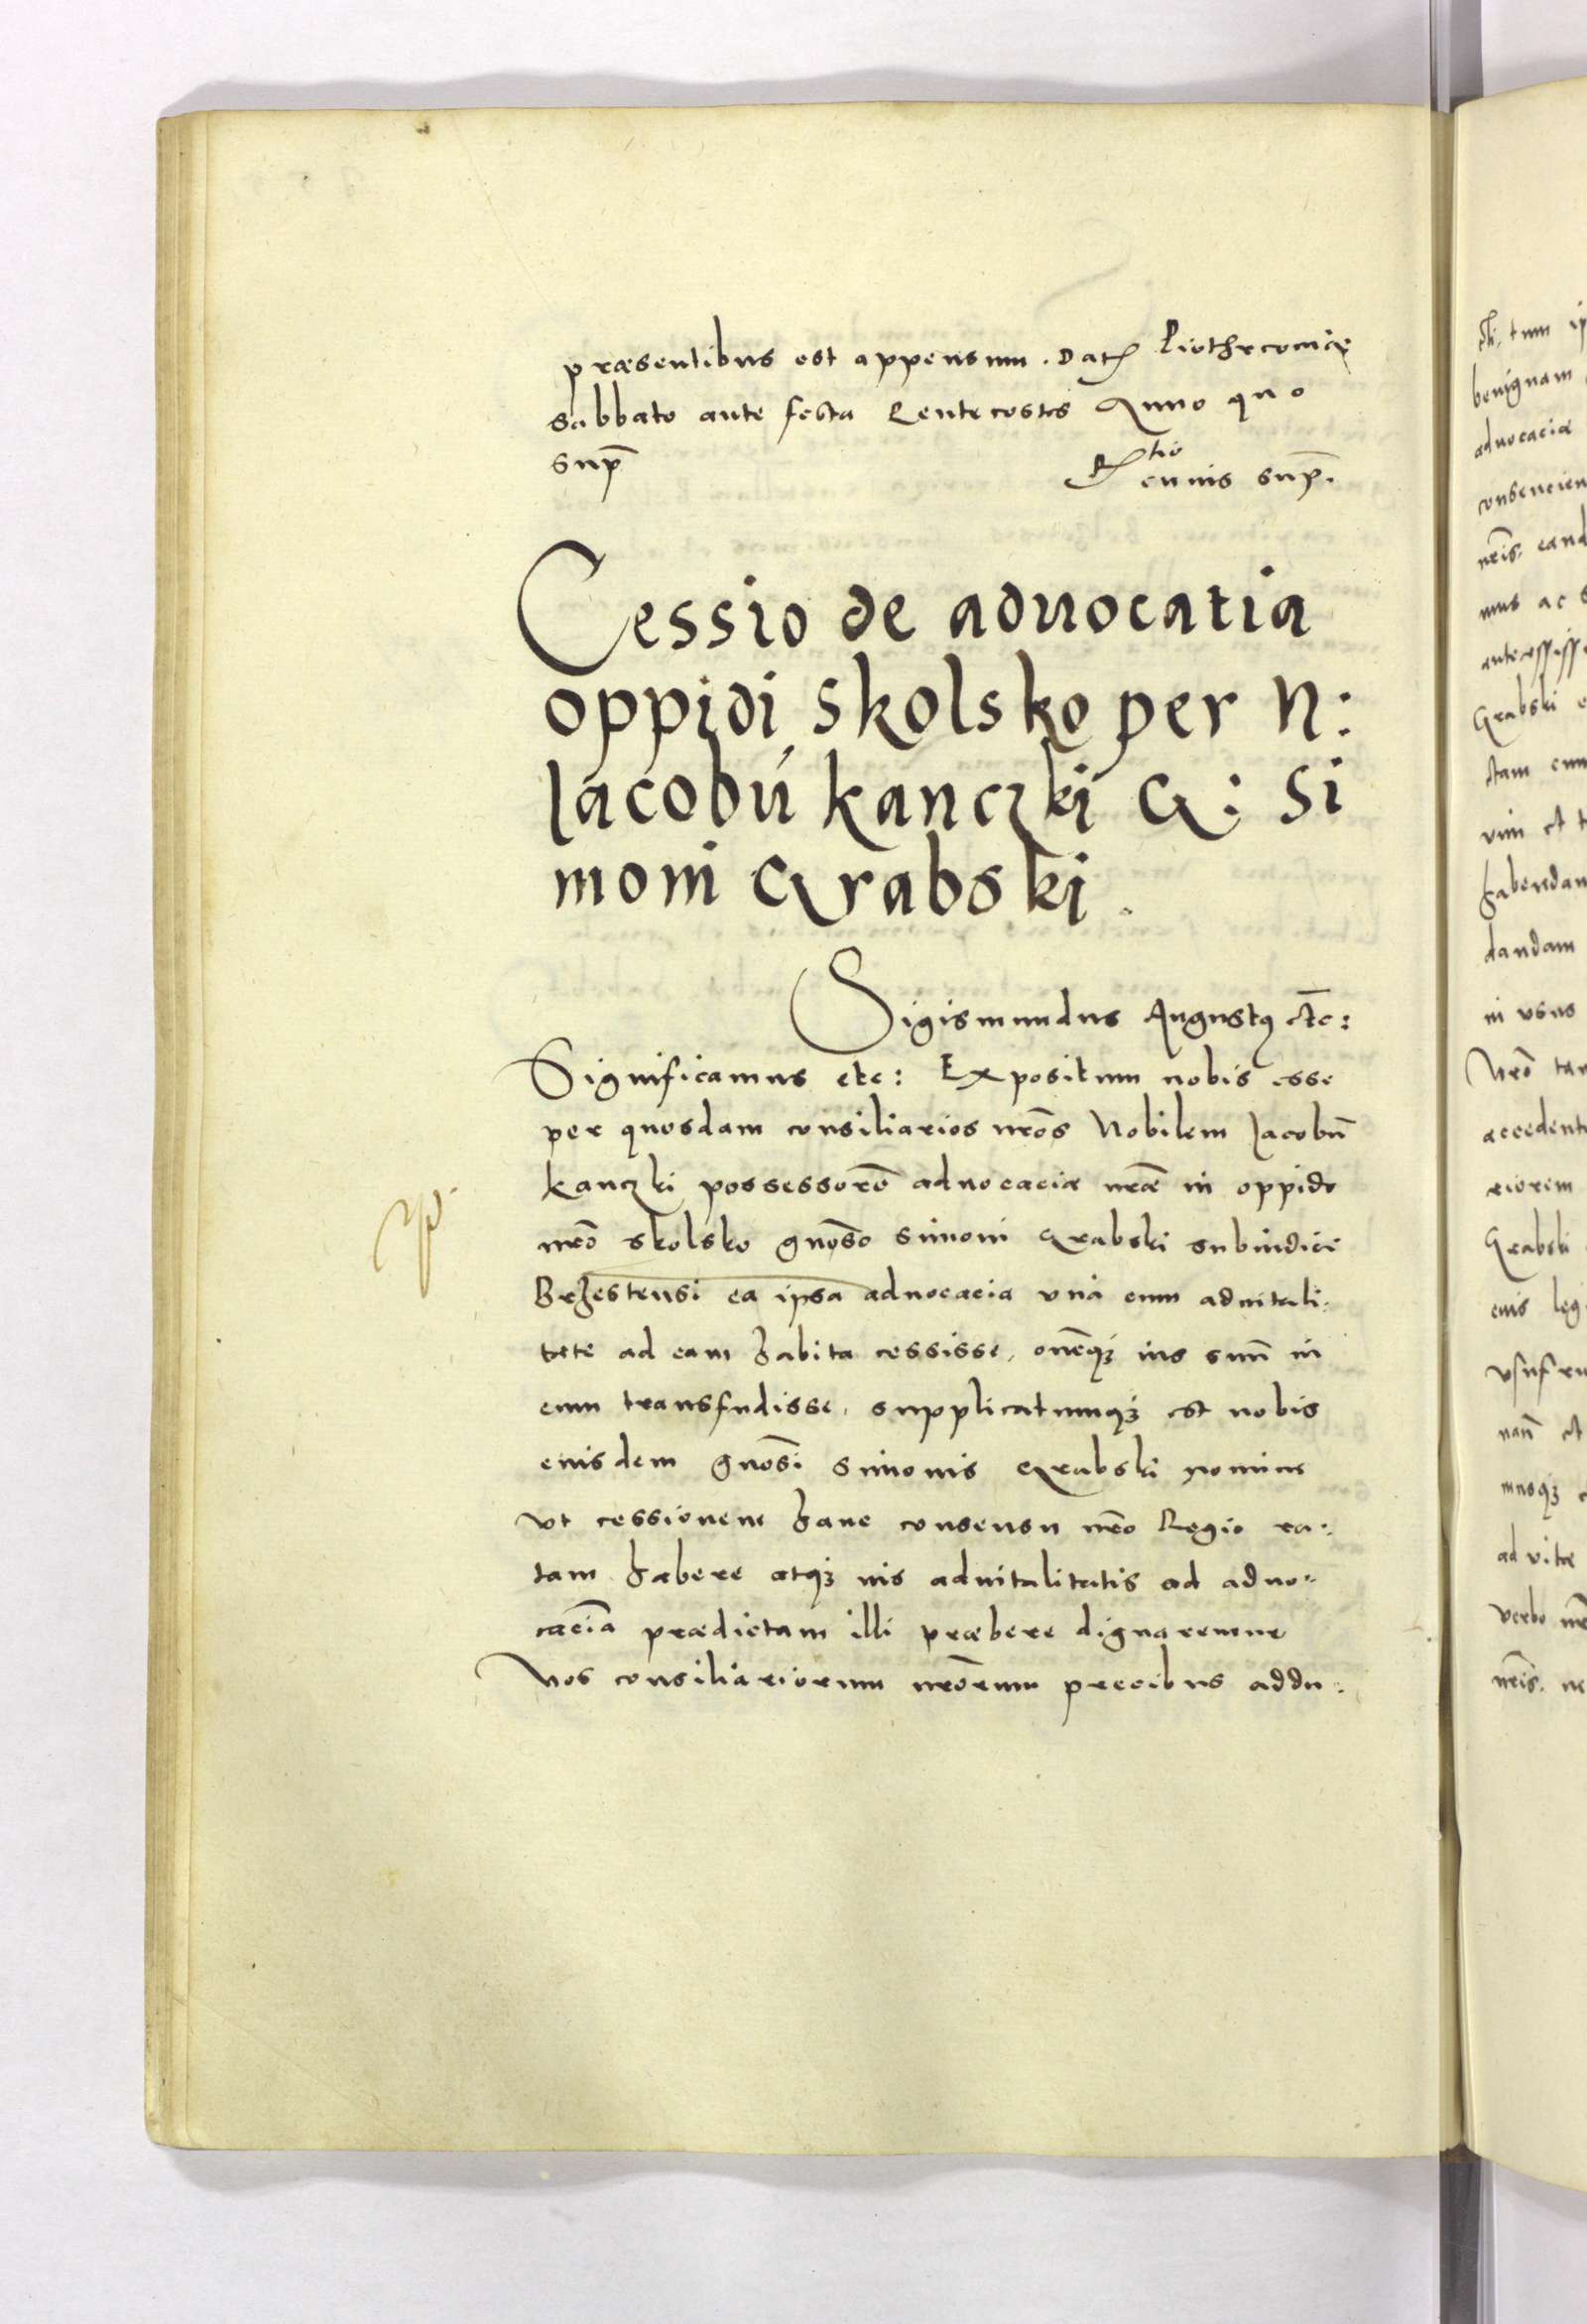 præsentibus est appensum. Dat Piothrcoviæ
Sabbato ante festa Pentecostes Anno quo
sup̄
R^tio cuius sup̄.
Cessio de aduocatia
oppidi Skolsko per N:
Iacobú kanczki G: Si
moni Grabski.
Sigismundus Augustꝯ etc̄:
Significamus etc: Expositum nobis esse
per quosdam consiliarios nr̄os Nobilem Iacobū
kanczki possessorē aduocaciæ nr̄æ in oppido
nr̄o Skolsko gn̄oso Simoni Grabski subiudici
Brzestensi ea ipsa aduocacia vnà cum aduitali:
tate ad eam habita cessisse, om̄eqꝫ ius suū in
eum transfudisse, supplicatumqꝫ est nobis
eiusdem gn̄osi Simonis Grabski nomine
vt cessionem hanc consensu nr̄o Regio ra:
tam habere atqꝫ ius aduitalitatis ad aduo:
caciā prædictam illi præbere dignaremur
Nos consiliariorum nr̄orum precibus addu:
cti, tum ip
benignam
aduocaciæ
consencien
nr̄is, eand
mus ac
antecessisse
Grabski
ctam cum
vim et t
habendam
dandam
in vsus
Nr̄o tam
accedent
riorem
Grabski
cuis leg
vsufru
nan̄ et
musqꝫ
ad vitæ
verbo nr̄
nr̄is. ne